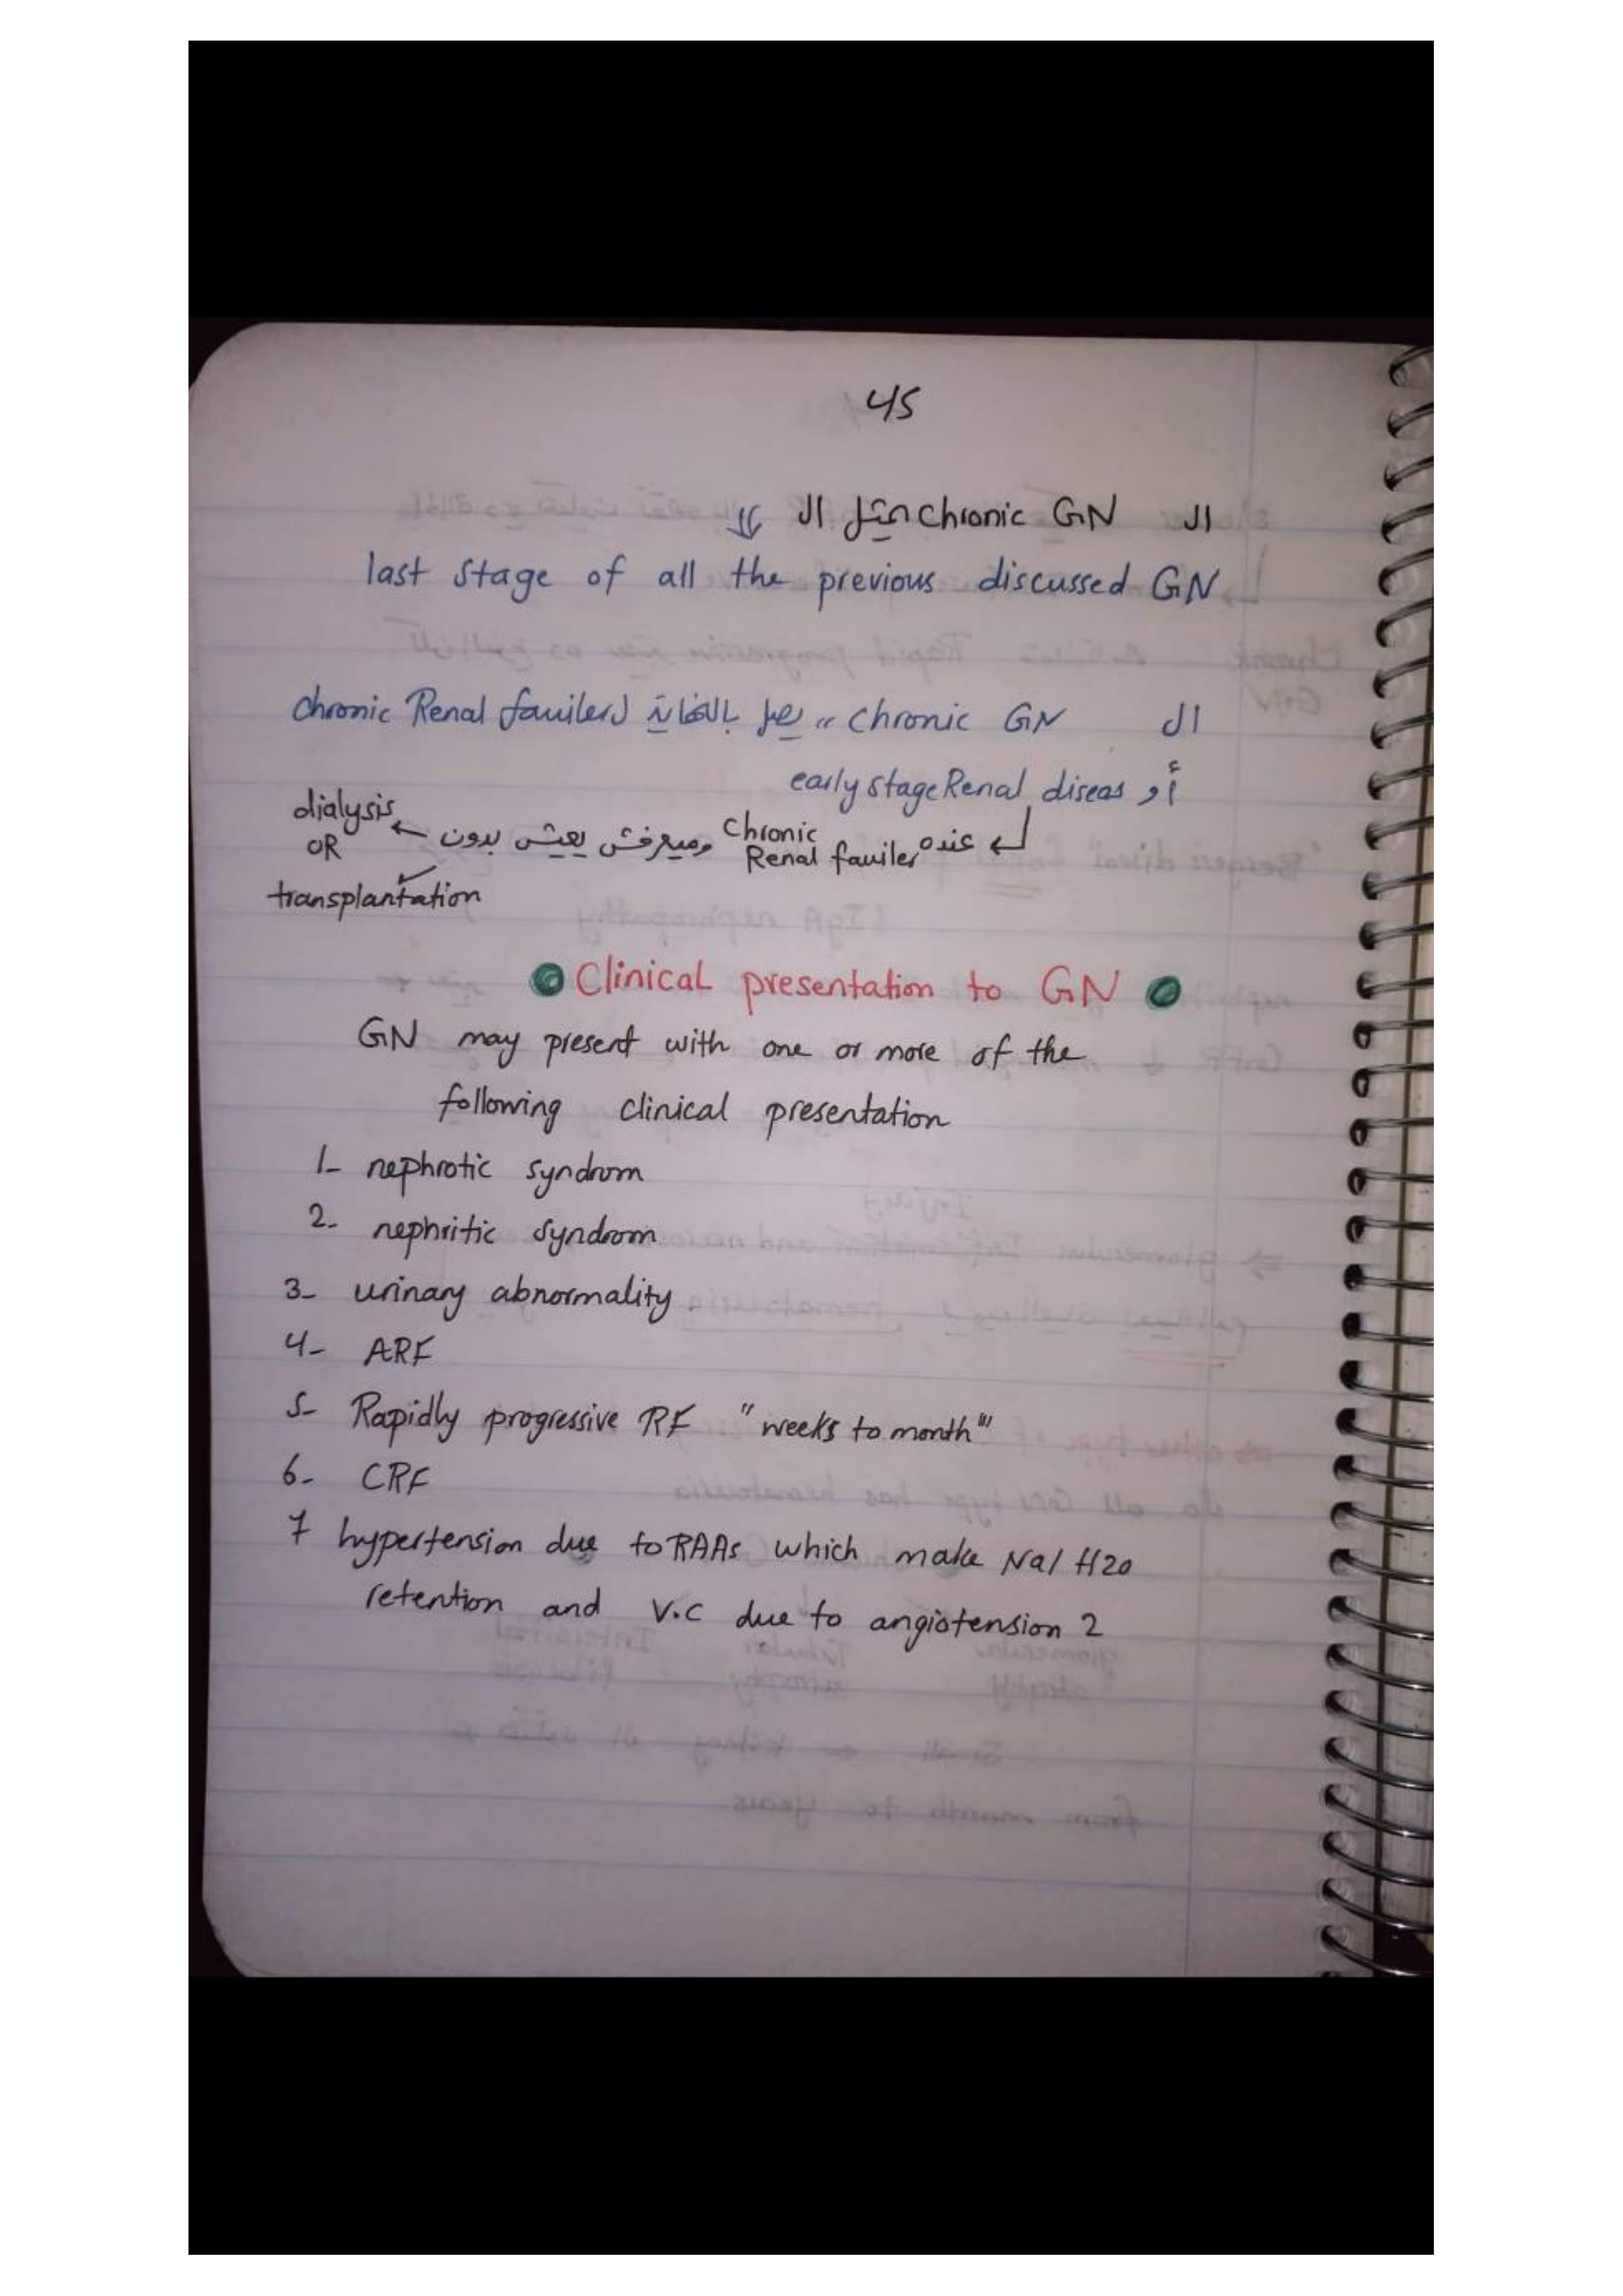 45
ال chronic GN بتمثل ال
last stage of all the previous discussed GN
ال chronic GN ,, يصل بالنهاية ل chronic Renal fauiler
أو early stage Renal diseas
عنده Chronic Renal fauiler وميعرفش يعيش بدون ← dialysis
OR
transplantation
Clinical presentation to GN
GN may present with one or more of the
following clinical presentation
1- nephrotic syndrom
2- nephritic syndrom
3- urinary abnormality
4- ARF
5- Rapidly progressive RF "weeks to month"
6- CRF
7 hypertension due to RAAs which make Na/ H2O
retention and V.C due to angiotension 2